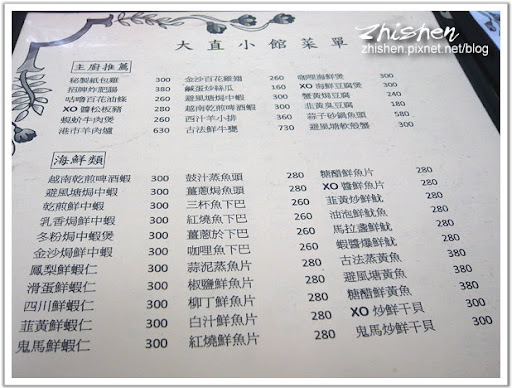 zhishen
zhishen.pixnet.net/blog
大直小館菜單
主廚推薦
秘製紙包雞 300 金沙百花雞翅 260 咖哩海鮮煲 300
招牌炸肥腸 360 鹹蛋炒絲瓜 160 XO 海鮮豆腐煲 280
咕嚕百花油條 260 避風塘焗中蝦 300 蟹黃焗豆腐 240
XO 醬松板豬 280 越南乾煎啤酒蝦 300 韭黃臭豆腐 240
蜆蚧羊肉煲 360 西汁羊小排 360 蒜子砂鍋魚頭 580
港市羊肉爐 630 古法鮮牛㹴 730 避風塘軟殼蟹 300
海鮮類
越南乾煎啤酒蝦 300 鼓汁蒸魚頭 280 糖醋鮮魚片 280
避風塘焗中蝦 300 薑蔥焗魚頭 280 XO 醬鮮魚片 280
乾煎鮮中蝦 300 三杯魚下巴 280 韭黃炒鮮魷 280
乳香焗鮮中蝦 300 紅燒魚下巴 280 油泡鮮魷魚 280
冬粉焗中蝦煲 300 薑蔥於下巴 280 馬拉盞鮮魷 280
金沙焗鮮中蝦 300 咖哩魚下巴 280 蝦醬爆鮮魷 280
鳳梨鮮蝦仁 300 蒜泥蒸魚片 280 古法蒸黃魚 380
滑蛋鮮蝦仁 300 椒鹽鮮魚片 280 避風塘黃魚 380
四川鮮蝦仁 300 柳丁鮮魚片 280 糖醋鮮黃魚 380
韭黃鮮蝦仁 300 白汁鮮魚片 280 XO 炒鮮干貝 300
鬼馬鮮蝦仁 300 紅燒鮮魚片 280 鬼馬炒鮮干貝 300